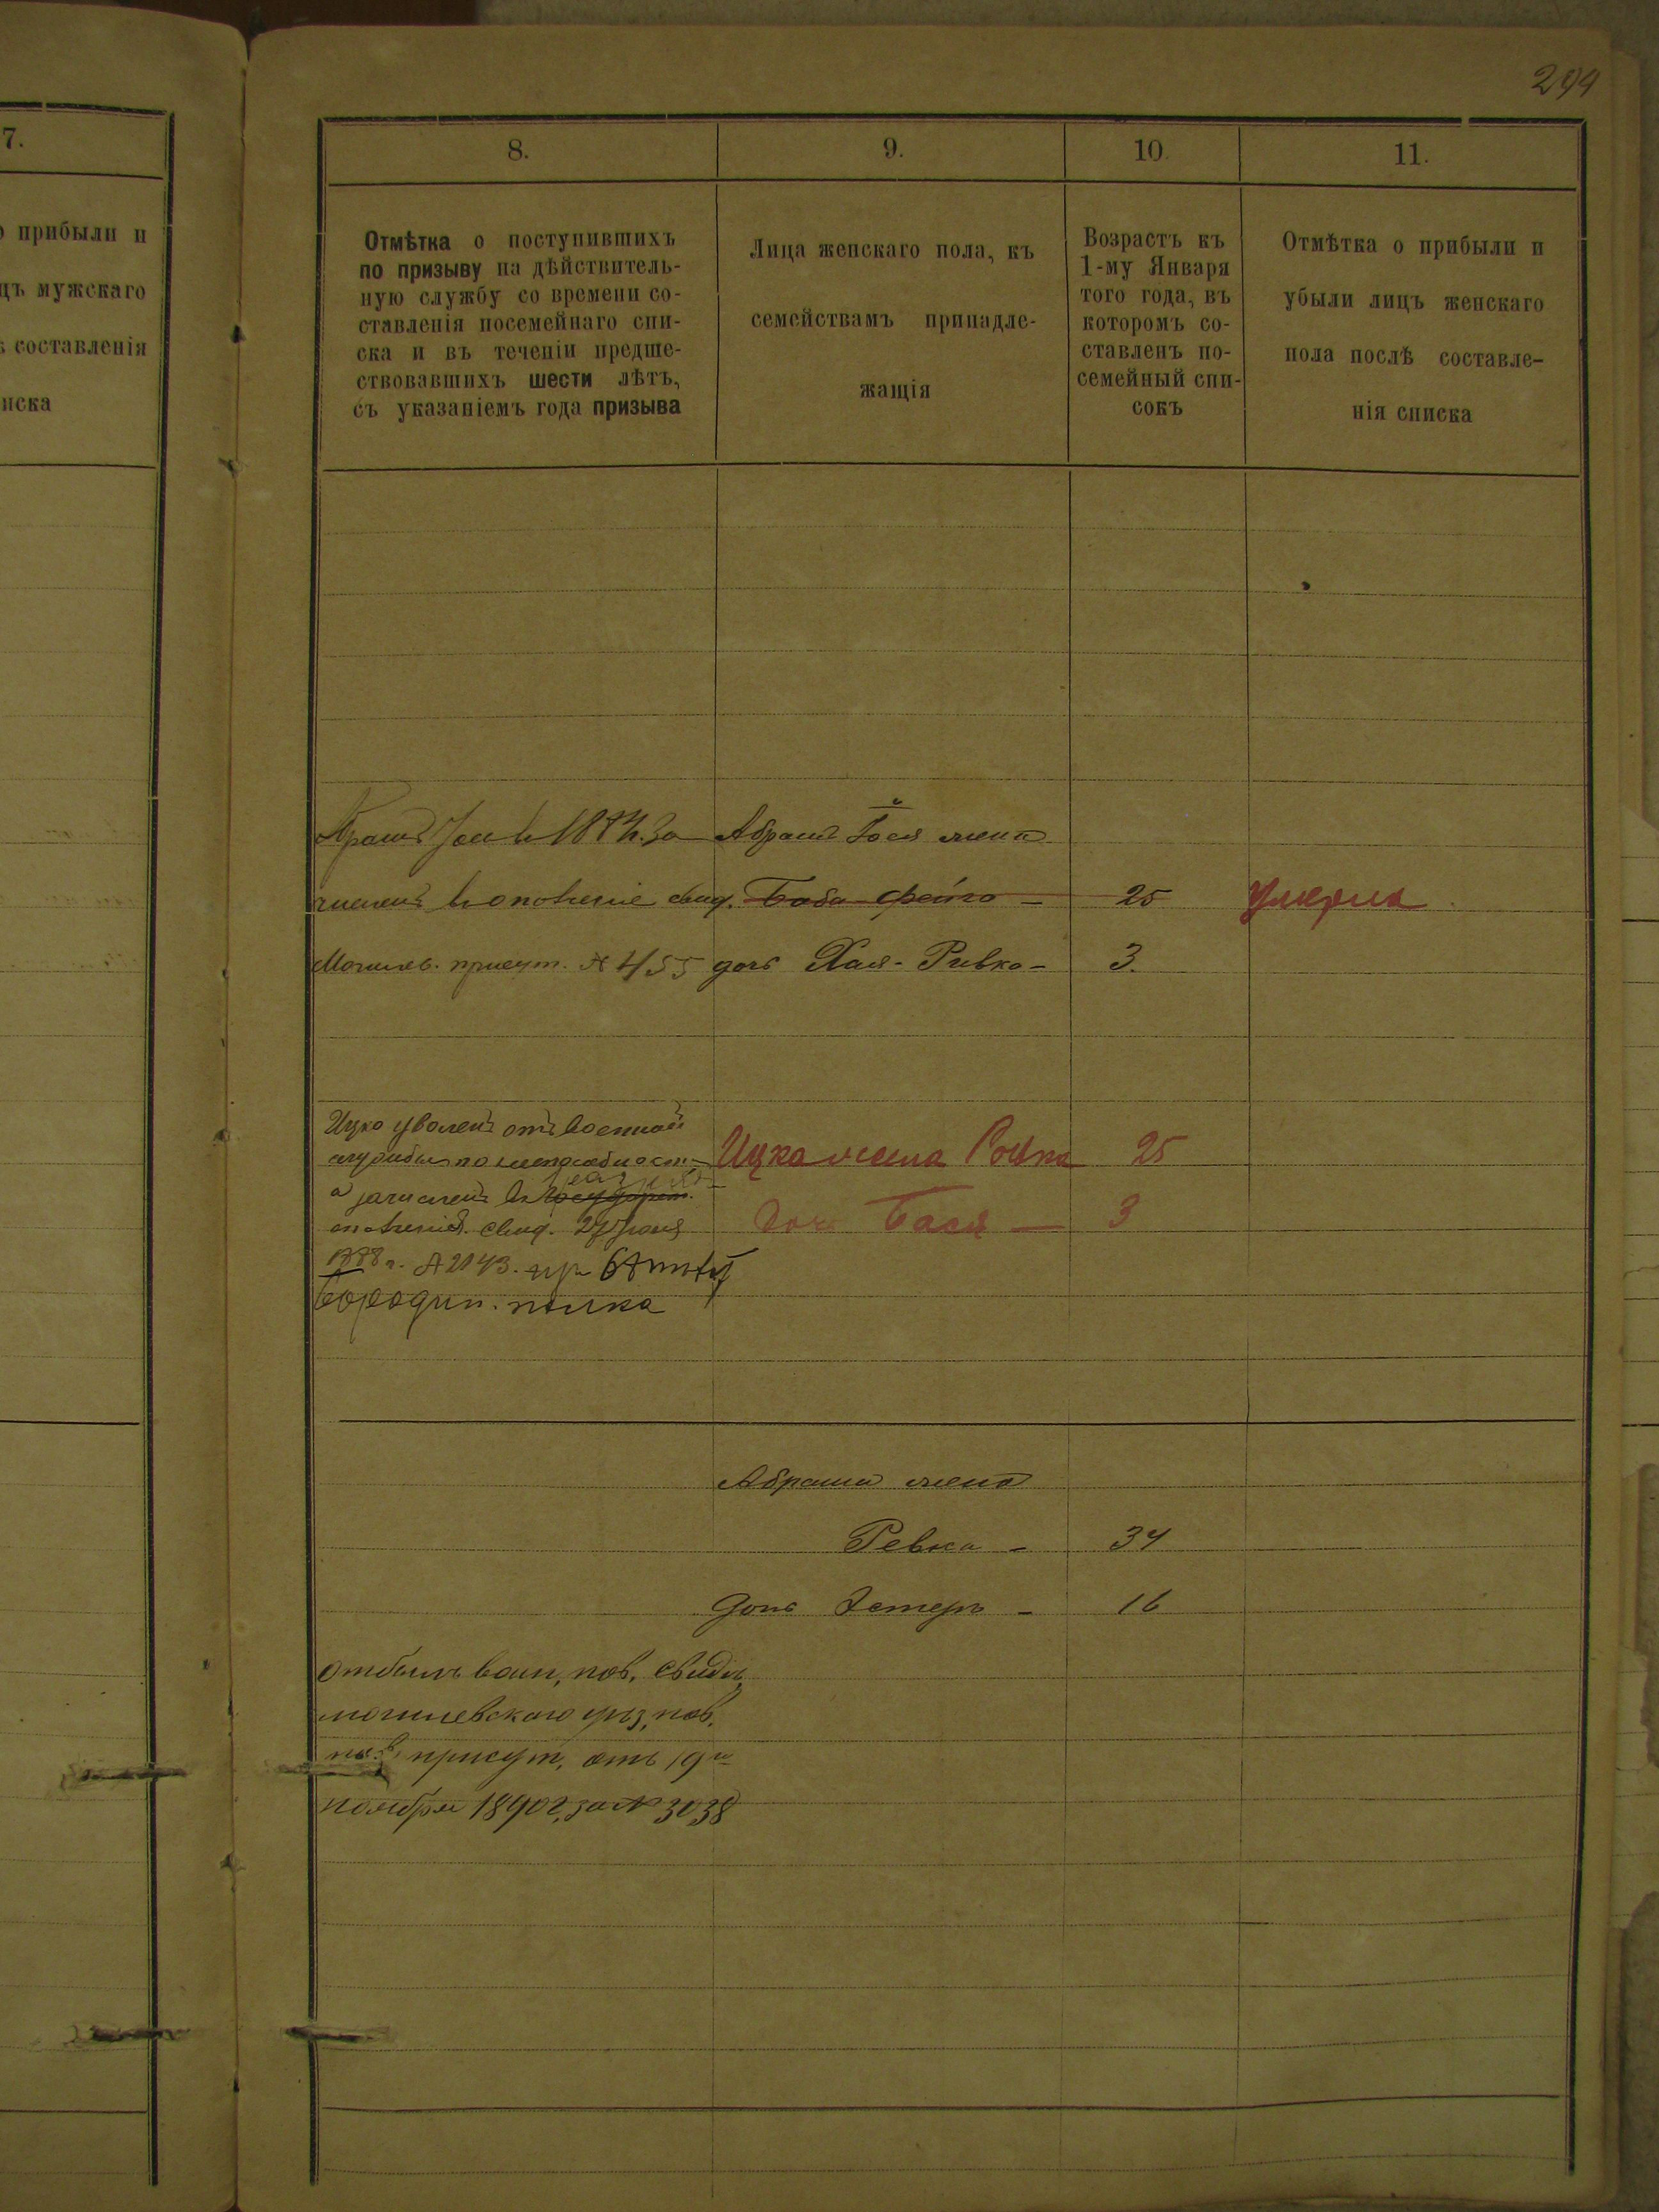 299
7.
прибыли и
мужскаго
составленія
8.
Отмѣтка о поступившихъ
по призыву на дѣйствитель-
ную службу со времени со-
ставленія посемейнаго спи-
ска и въ теченіи предше-
ствовавшихъ шести лѣтъ,
съ указаніемъ года призыва
9.
Лица женскаго пола, къ
семействамъ принадле-
жащія
10.
Возрастъ къ
1-му Января
того года, въ
которомъ со-
ставленъ по-
семейный спи-
сокъ
11.
Отмѣтка о прибыли и
убыли лицъ женскаго
пола послѣ составле-
нія списка
за Абрама жена
численъ в ополчение свид. Баба Фейга - 25 Умерла
Могилев. присут. № 455 дочь Хая-Ривка - 3.
Ицко уволенъ отъ военной
службы по неспособност. Ицка жена 25
а зачисленъ в
ополчения. свид. 27
дочь Бася — 3
1888 г. № 2143.
Бородин. полка
Абрама жена
Ревка - 34
дочь Эстеръ - 16
отбылъ воин. пов. свидѣ.
могилевскаго уѣз. пов.
присут. отъ 19го
ноября 1890 г. за № 3038